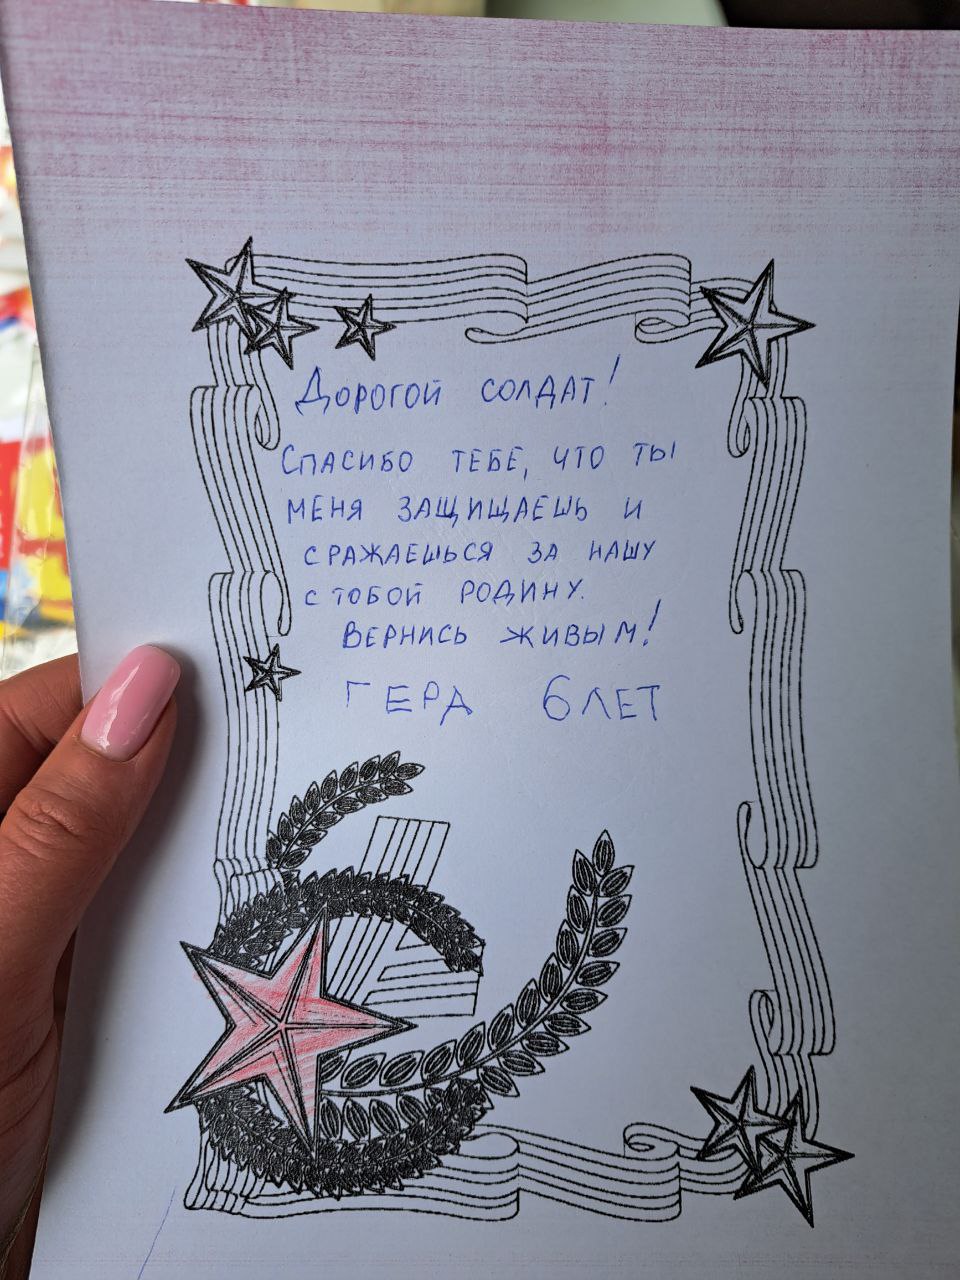 Дорогой солдат!
Спасибо тебе, что ты
меня защищаешь и
сражаешься за нашу
с тобой Родину.
Вернись живым!
ГЕРД 6 ЛЕТ